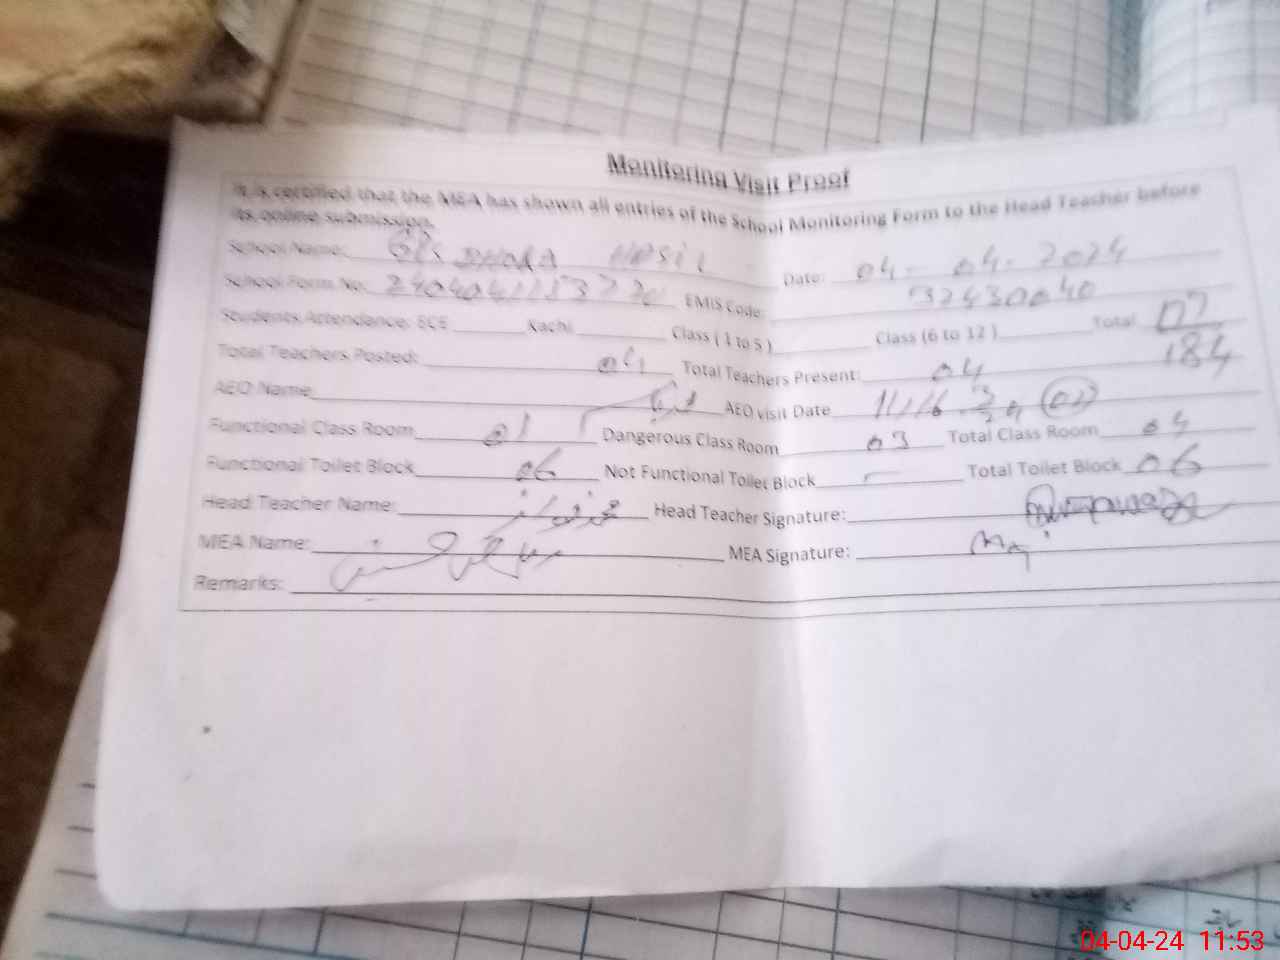 Monitoring Visit Proof
It is certified that the MEA has shown all entries of the School Monitoring Form to the Head Teacher before
its online submission.
School Name: Date: 04-04-2024
School Form No. EMIS Code: 32430040
Students Attendance: ECE Kachi Class ( 1 to 5 ) Class (6 to 12 ) Total 07
184
Total Teachers Posted: 04 Total Teachers Present: 04
AEO Name AEO visit Date
Functional Class Room 01 Dangerous Class Room 03 Total Class Room 04
Functional Toilet Block 06 Not Functional Toilet Block – Total Toilet Block 06
Head Teacher Name: Head Teacher Signature:
MEA Name: MEA Signature:
Remarks:
04-04-24 11:53